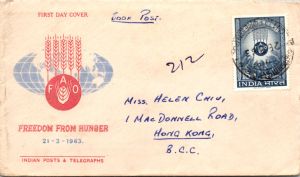 FIRST DAY COVER
BOOK POST.
212
FAO
FREEDOM FROM HUNGER
21-3-1963.
INDIAN POSTS & TELEGRAPHS
MISS. HELEN CHIU,
1 MACDONNELL ROAD,
HONG KONG,
B.C.C.
15
INDIA भारत